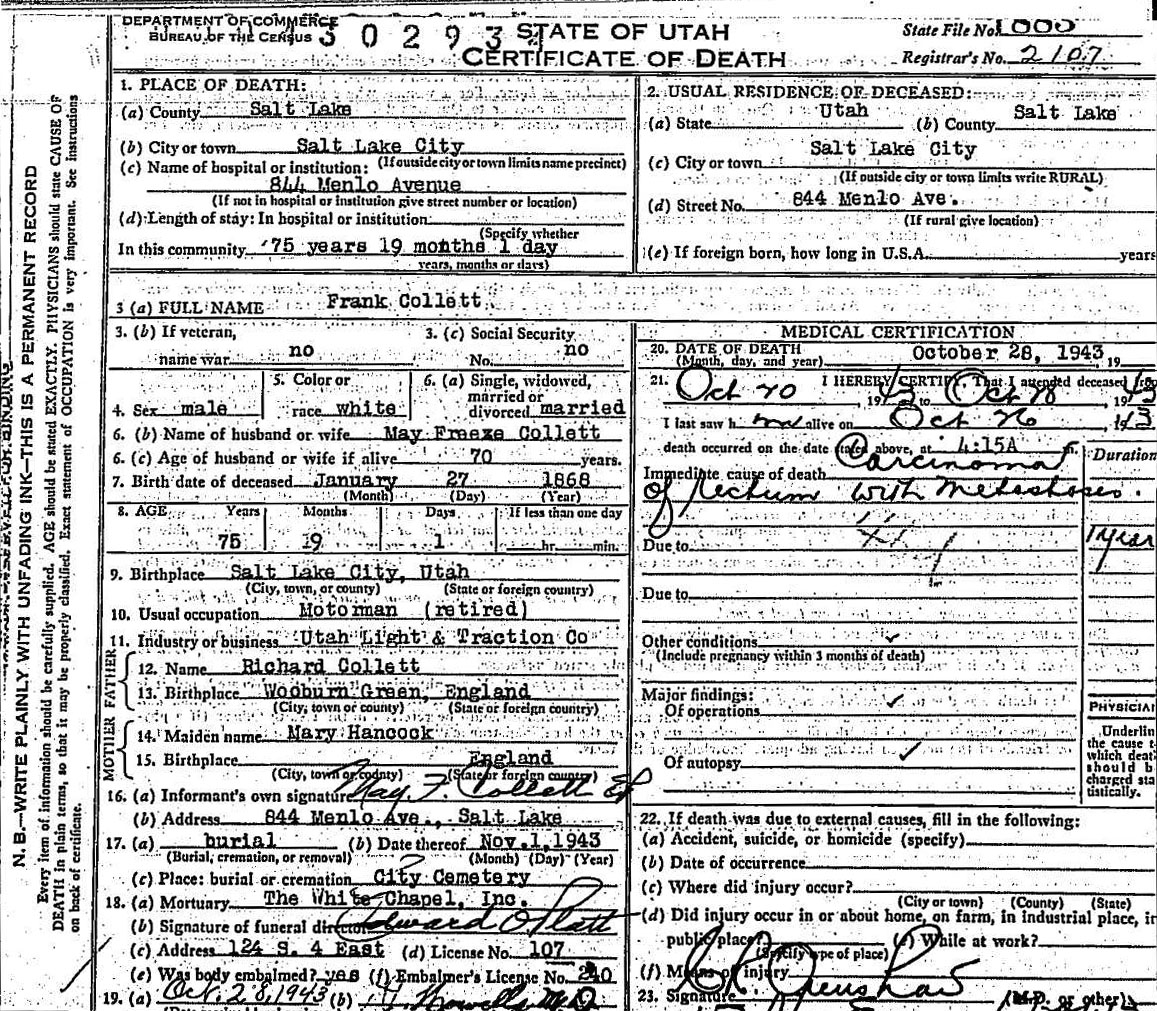 DEPARTMENT OF COMMERCE
BUREAU OF THE CENSUS
3 0 2 9 3
STATE OF UTAH
CERTIFICATE OF DEATH
State File No.
Registrar's No. 2107
N. B.—WRITE PLAINLY WITH UNFADING INK—THIS IS A PERMANENT RECORD
Every item of information should be carefully supplied. AGE should be stated EXACTLY. PHYSICIANS should state CAUSE OF
DEATH in plain terms, so that it may be properly classified. Exact statement of OCCUPATION is very important. See instructions
on back of certificate.
1. PLACE OF DEATH:
(a) County Salt Lake
(b) City or town Salt Lake City
(If outside city or town limits name precinct)
(c) Name of hospital or institution:
844 Menlo Avenue
(If not in hospital or institution give street number or location)
(d) Length of stay: In hospital or institution
(Specify whether
In this community 75 years 19 months 1 day
years, months or days)
2. USUAL RESIDENCE OF DECEASED:
(a) State Utah (b) County Salt Lake
(c) City or town Salt Lake City
(If outside city or town limits write RURAL)
(d) Street No. 844 Menlo Ave.
(If rural give location)
(e) If foreign born, how long in U.S.A. years
3 (a) FULL NAME Frank Collett
3. (b) If veteran, name war no
3. (c) Social Security No. no
4. Sex male
5. Color or race white
6. (a) Single, widowed, married or divorced married
6. (b) Name of husband or wife May Freeze Collett
6. (c) Age of husband or wife if alive 70 years.
7. Birth date of deceased January 27 1868
(Month) (Day) (Year)
8. AGE Years Months Days If less than one day
75 19 1 hr. min.
9. Birthplace Salt Lake City, Utah
(City, town, or county) (State or foreign country)
10. Usual occupation Motorman (retired)
11. Industry or business Utah Light & Traction Co
FATHER
12. Name Richard Collett
13. Birthplace Wooburn Green, England
(City, town or county) (State or foreign country)
MOTHER
14. Maiden name Mary Hancock
15. Birthplace England
(City, town or county) (State or foreign country)
16. (a) Informant's own signature May F. Collett
(b) Address 844 Menlo Ave., Salt Lake
17. (a) burial (b) Date thereof Nov.1,1943
(Burial, cremation, or removal) (Month) (Day) (Year)
(c) Place: burial or cremation City Cemetery
18. (a) Mortuary The White Chapel, Inc.
(b) Signature of funeral director Edward O Platt
(c) Address 124 S. 4 East (d) License No. 107
(e) Was body embalmed? yes (f) Embalmer's License No. 240
19. (a) Oct. 28, 1943 (b)
MEDICAL CERTIFICATION
20. DATE OF DEATH October 28, 1943, 19
(Month, day, and year)
21. I HEREBY CERTIFY, That I attended deceased from
Oct 20, 1943 to Oct 28, 1943
I last saw h im alive on Oct 26, 1943
death occurred on the date stated above, at 4:15A m.
Duration
Immediate cause of death Carcinoma
of rectum with metastases.
1 year
Due to
Due to
Other conditions ✓
(Include pregnancy within 3 months of death)
Major findings:
Of operations ✓
Of autopsy ✓
PHYSICIAN
Underlin
the cause t
which deat
should b
charged sta
tistically.
22. If death was due to external causes, fill in the following:
(a) Accident, suicide, or homicide (specify)
(b) Date of occurrence
(c) Where did injury occur?
(City or town) (County) (State)
(d) Did injury occur in or about home, on farm, in industrial place, in
public place? (e) While at work?
(Specify type of place)
(f) Means of injury
23. Signature (M.D. or other)